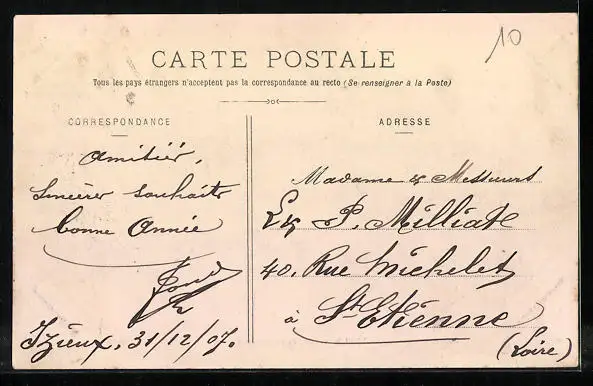 10
CARTE POSTALE
Tous les pays étrangers n'acceptent pas la correspondance au recto (Se renseigner à la Poste)
CORRESPONDANCE
amitiés,
Sincères souhaits
bonne Année
Izieux, 31/12/07.
ADRESSE
Madame & Messieurs
P. Milliat
40, Rue Michelet
à St Etienne
(Loire)